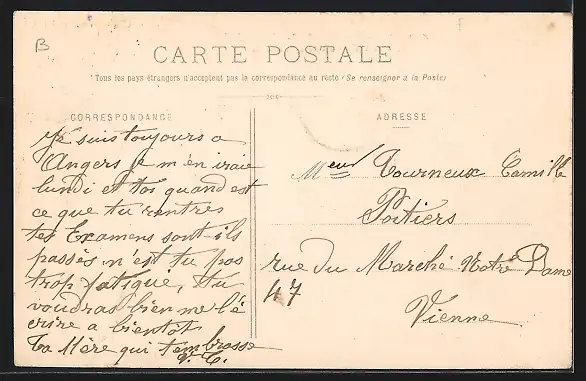 B
CARTE POSTALE
Tous les pays étrangers n'acceptent pas la correspondance au recto (Se renseigner à la Poste)
CORRESPONDANCE
Je suis toujours a
Angers je m'en iraie
lundi et toi quand est
ce que tu rentres
tes Examens sont-ils
passés n'est tu pas
trop fatigué, tu
voudras bien me l'é
crire a bientôt
Ta Mère qui t'embrasse
V. T.
ADRESSE
Meur Tourneux Camille
Poitiers
rue du Marché Notre Dame
47
Vienne